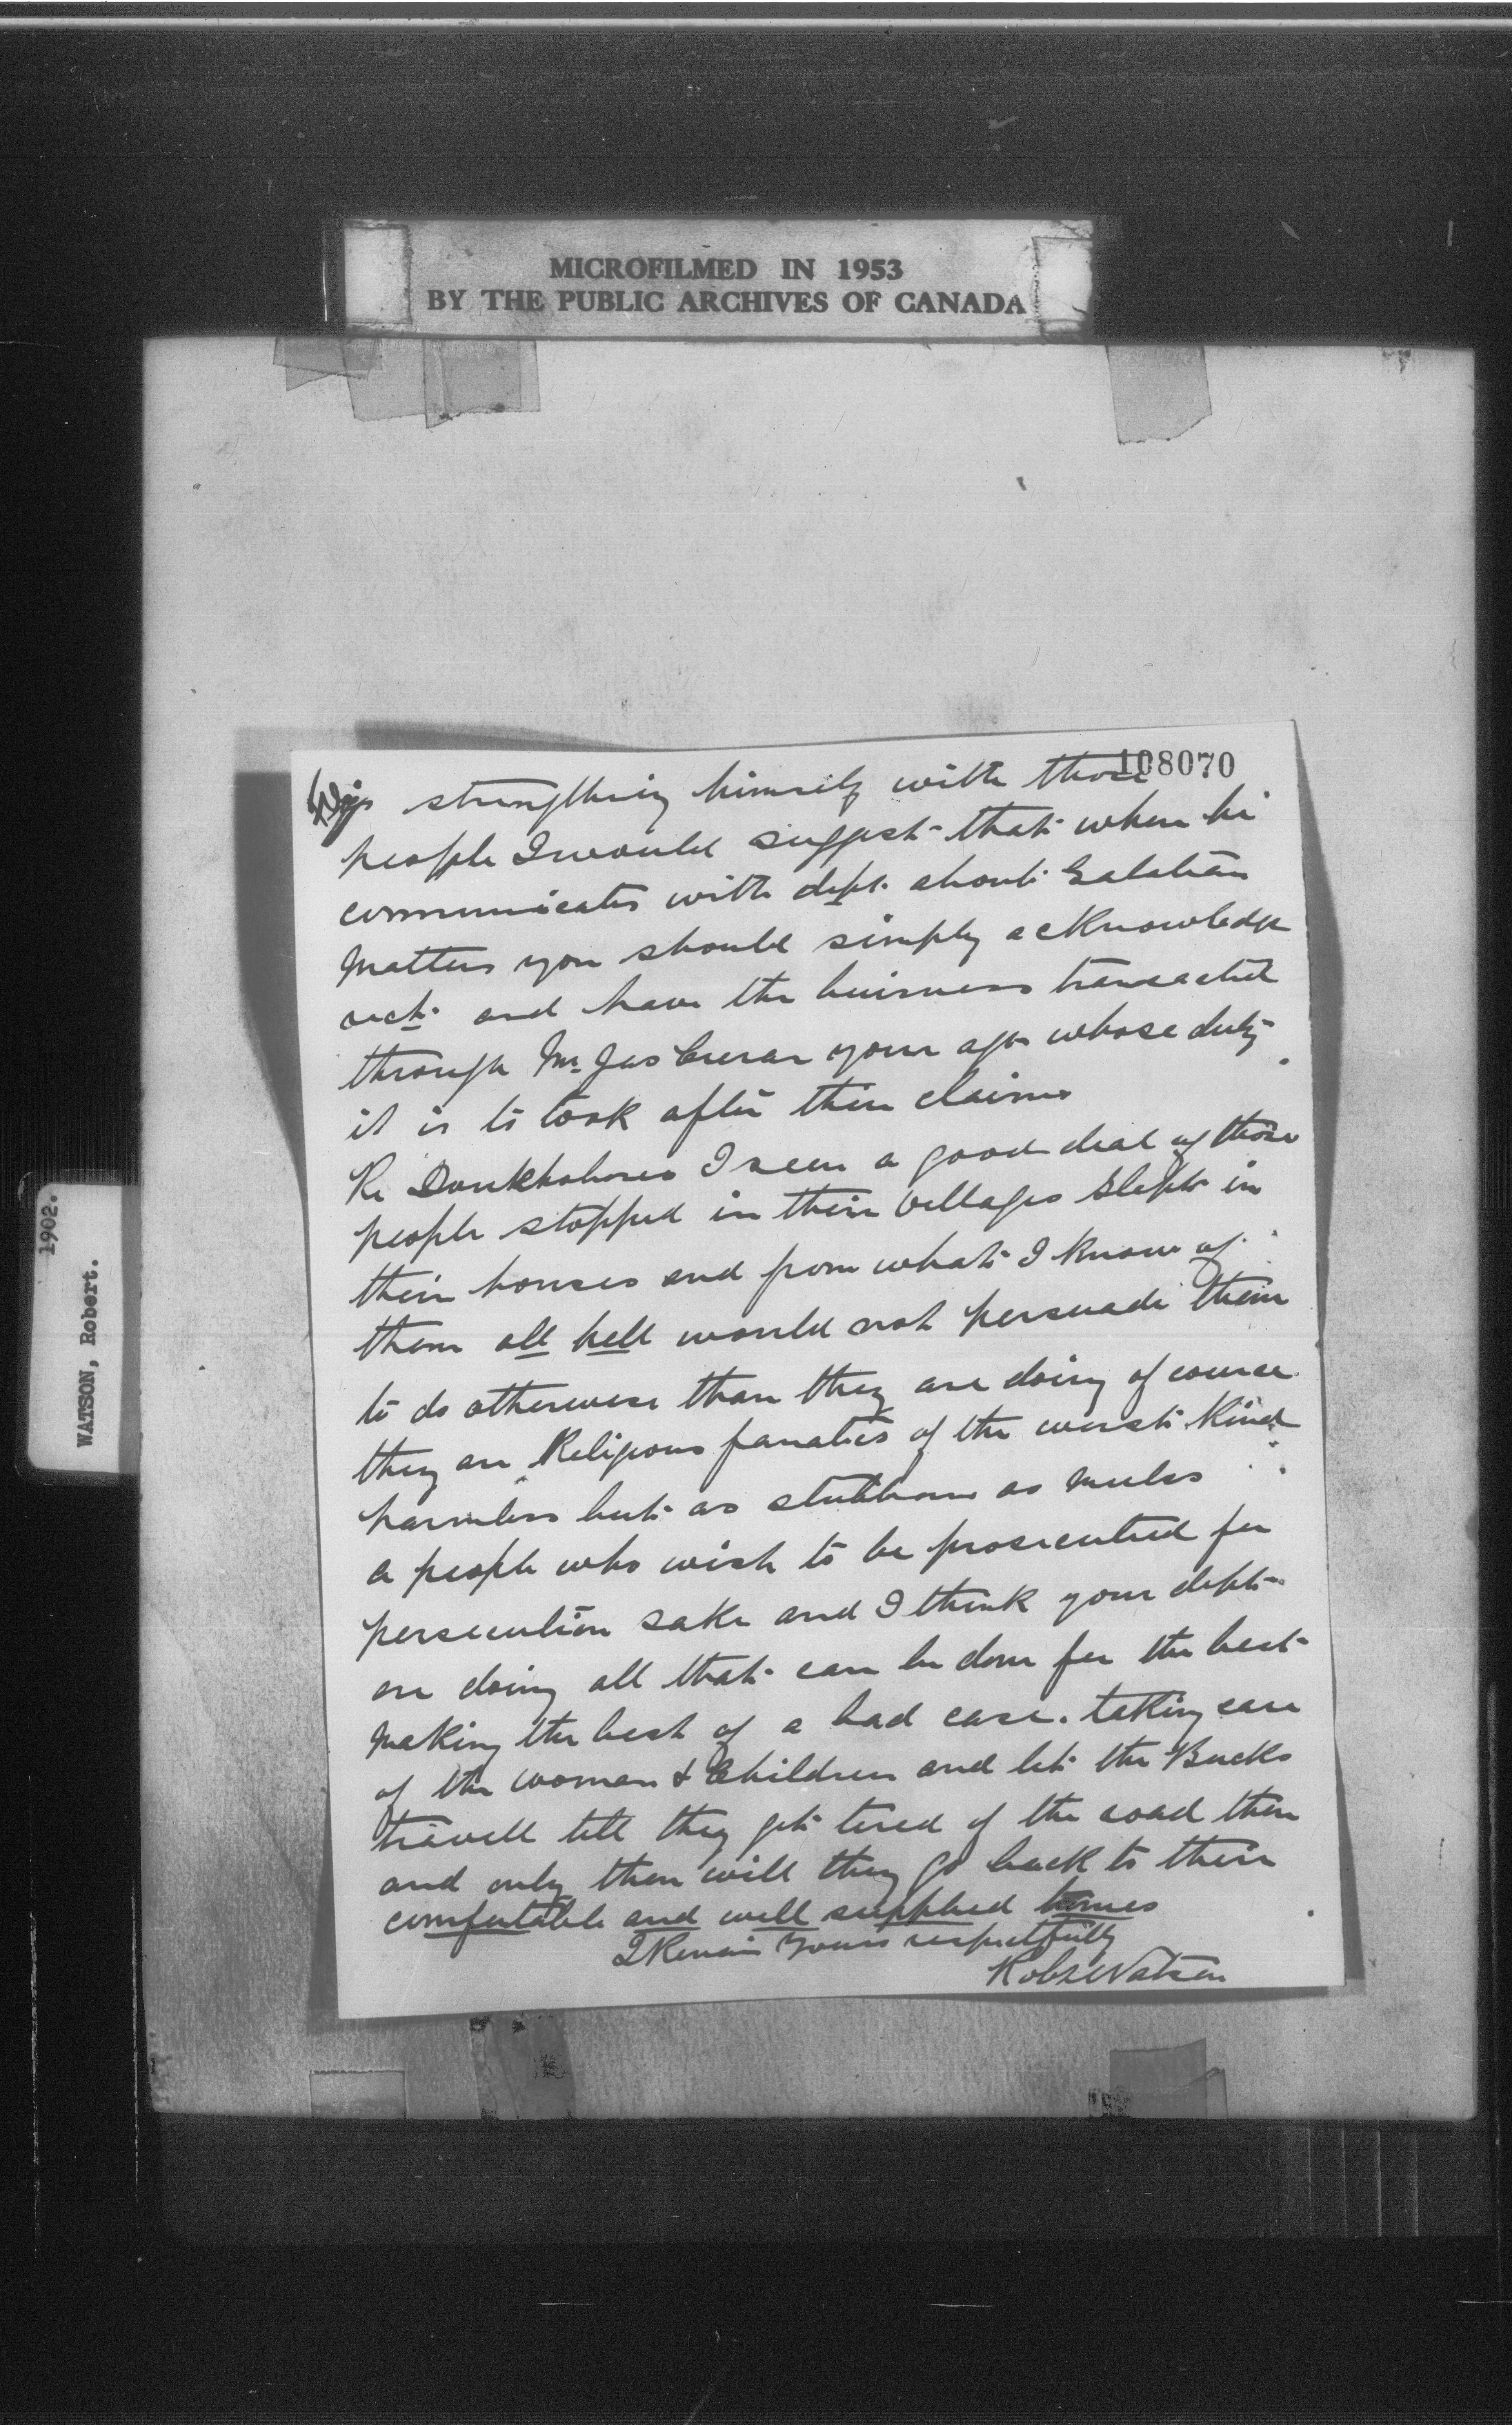 MICROFILMED IN 1953
BY THE PUBLIC ARCHIVES OF CANADA
108070
strengthing himself with those
people I would suggest that when he
communicates with dept. about Galatian
Matters you should simply acknowledge
rect. and have the buisness transacted
through Mr. Jas Crerar your agt whose duty
it is to look after their claims
Re Doukhobores I seen a good deal of those
people stopped in their Villages Slept in
their houses and from what I know of
them all hell would not persuade them
to do otherwise than they are doing of course
they are Religious fanatics of the worst Kind
harmless but as stubborn as Mules
a people who wish to be prosecuted for
persecution sake and I think your dept
are doing all that can be done for the best
Making the best of a bad case. taking care
of the woman & Children and let the Bucks
travell till they get tired of the road then
and only then will they go back to their
comfortable and well supplied homes
I Remain Yours respectfully
Robt Watson
WATSON, Robert.
1902.